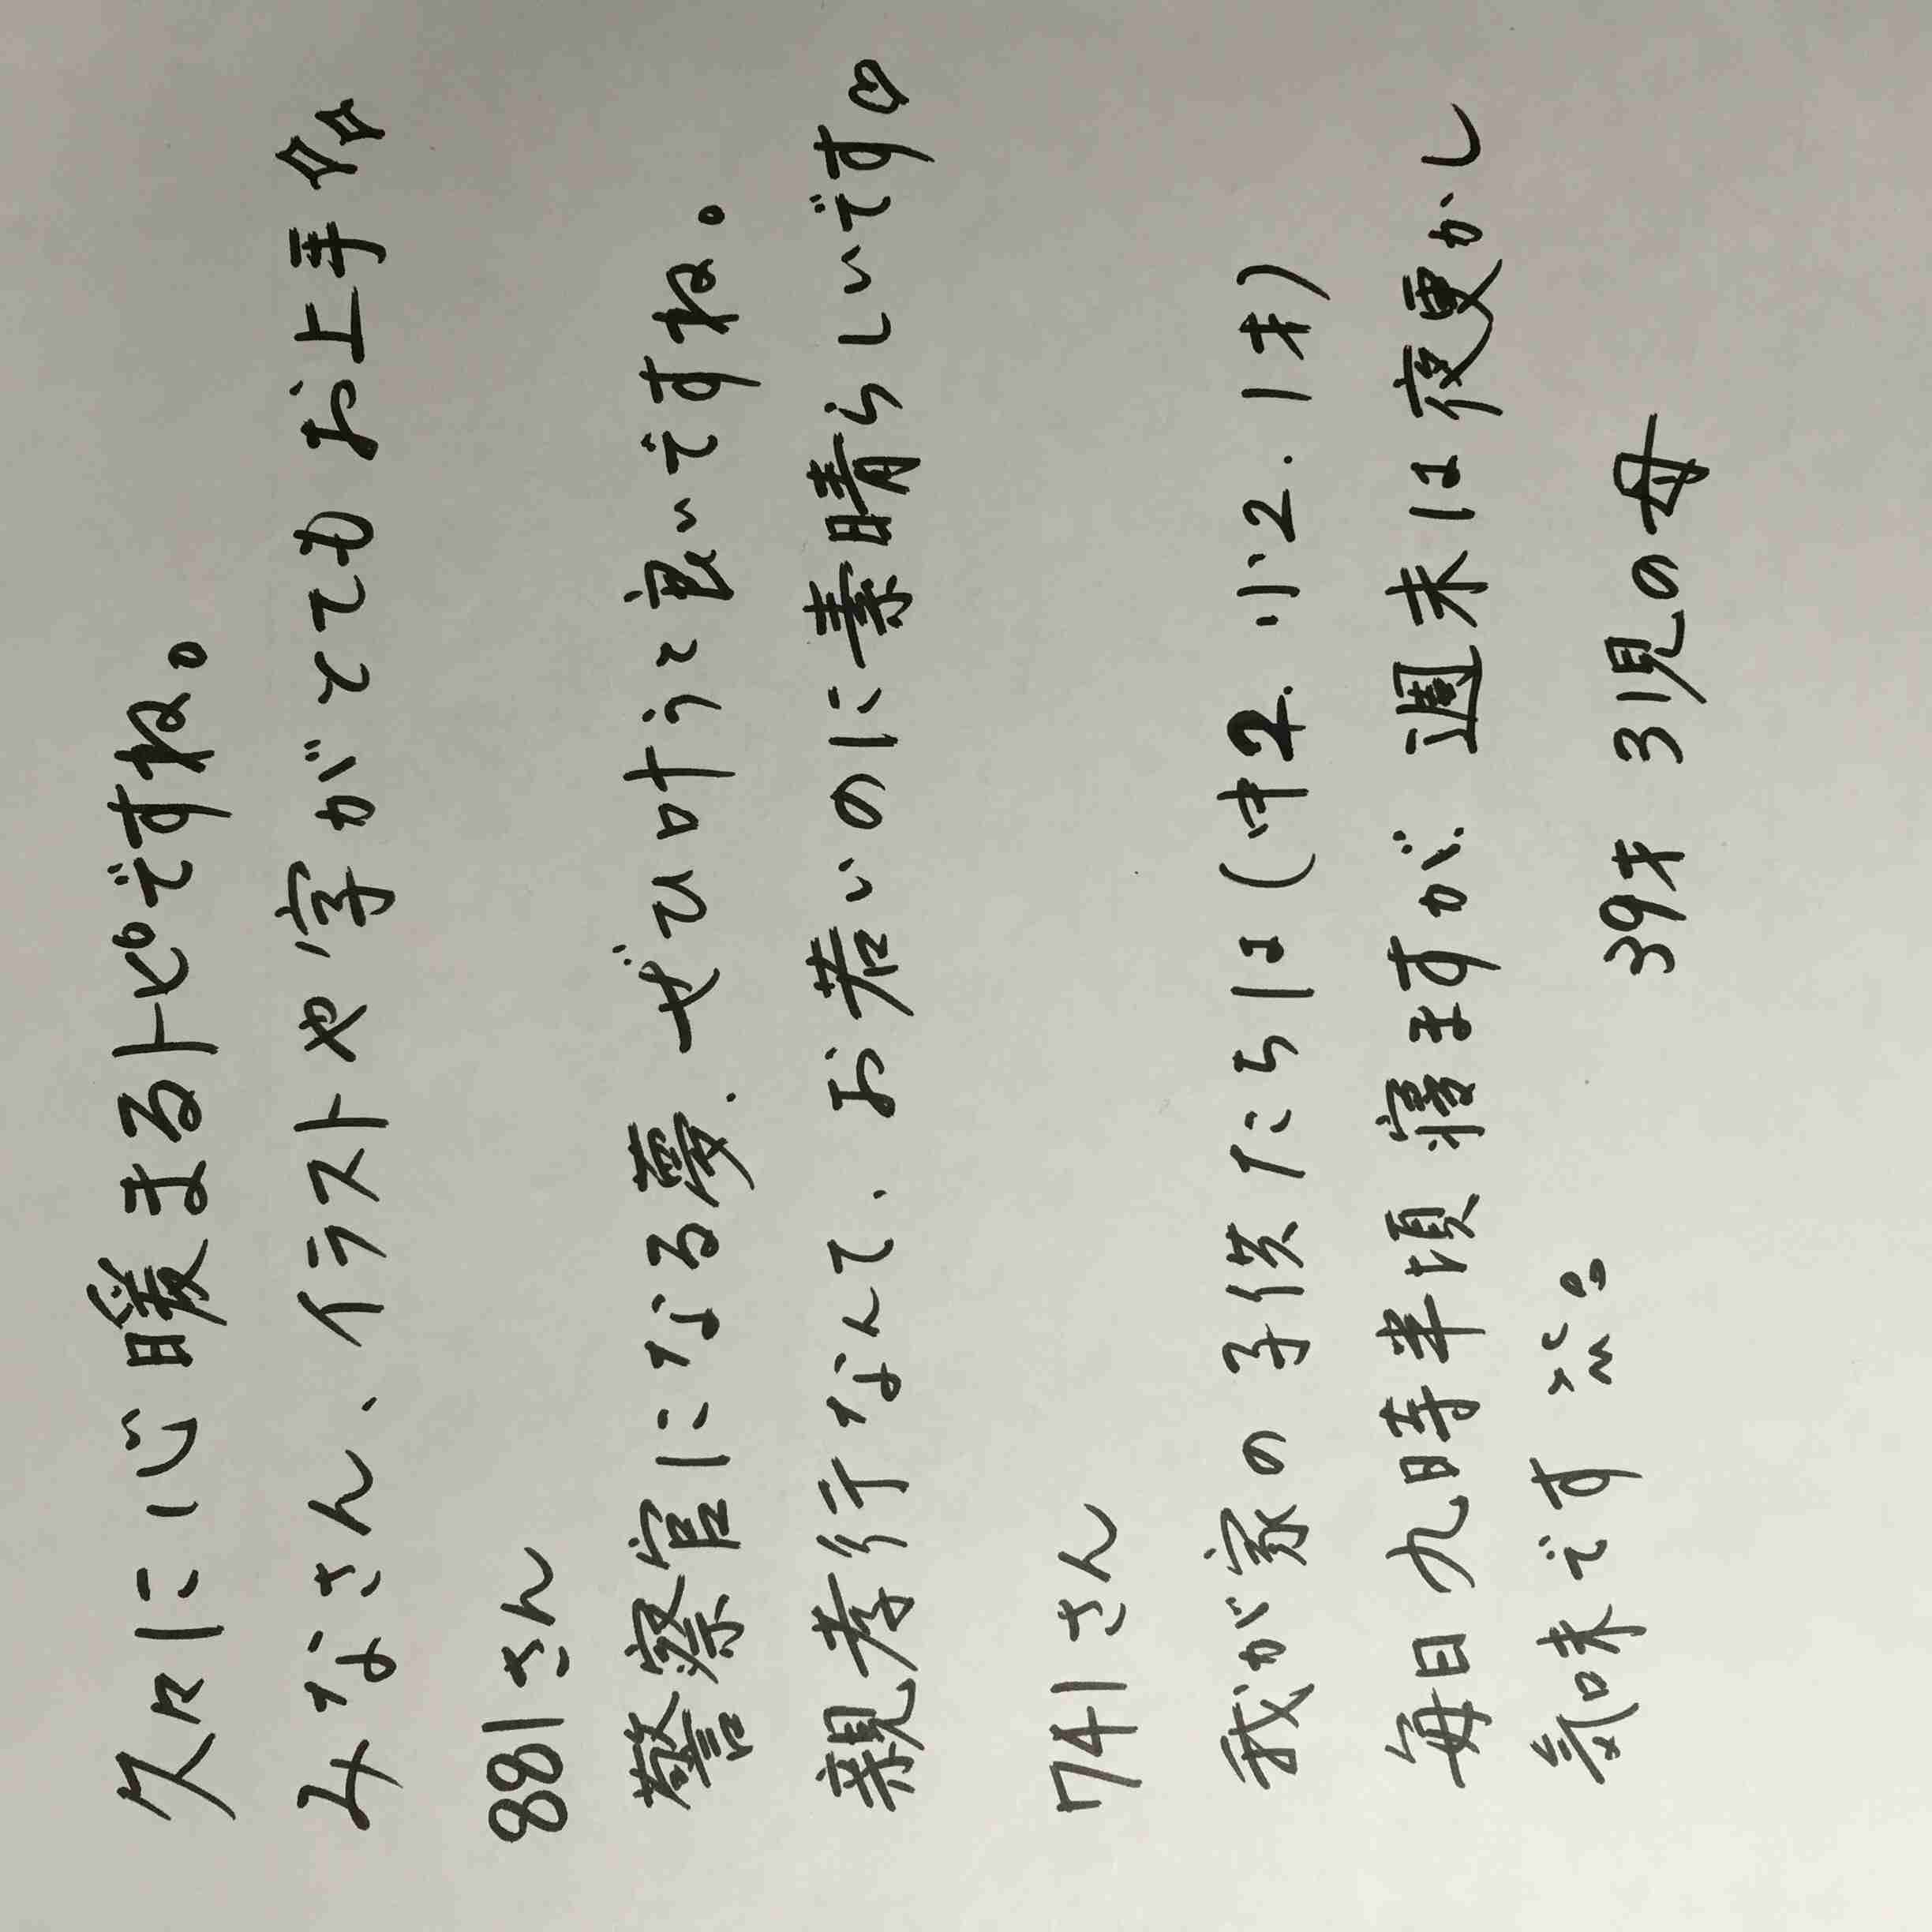 久々に心暖まるトピですね。
みなさん、イラストや字がとてもお上手✨
881さん
警察官になる夢、ぜひ叶うと良いですね。
親孝行なんて、お若いのに素晴らしいです♡
741さん
我が家の子供たちは(中2、小2、1才)
毎日九時半頃寝ますが、週末は夜更かし
気味です 。
39才 3児の母